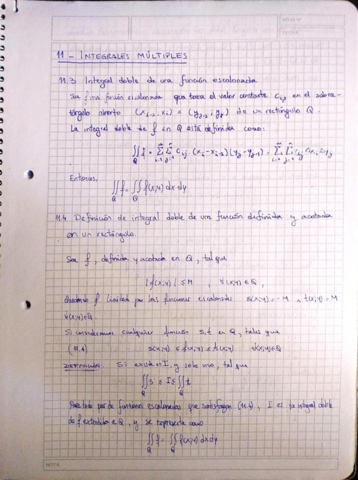 11 - INTEGRALES MÚLTIPLES
11.3 Integral doble de una función escalonada
Sea f una función escalonada que toma el valor constante Cij en el
abierto (xi-1, xi) × (yj-1, yj) de un rectángulo Q.
La integral doble de f en Q está definida como:
∬Q f = Σ Σ Cij · (xi - xi-1)(yj - yj-1)
Entonces,
∬Q f = ∬Q f(x,y) dx dy
11.4 Definición de integral doble de una función definida y acotada
en un rectángulo.
Sea f, definida y acotada en Q, tal que
|f(x,y)| ≤ M , ∀(x,y) ∈ Q,
f por las funciones escalonadas s(x,y) = -M t(x,y) = M
∀(x,y)∈Q
Si consideramos cualquier función s,t en Q, tales que
s(x,y) ≤ f(x,y) ≤ t(x,y) ∀(x,y)∈Q
Si existe un I, y solo uno, tal que
∬Q s ≤ I ≤ ∬Q t
Para todo par de funciones escalonadas que satisfagan , I es la integral doble
de f extendida a Q, y se representa como
∬Q f = ∬Q f(x,y) dx dy